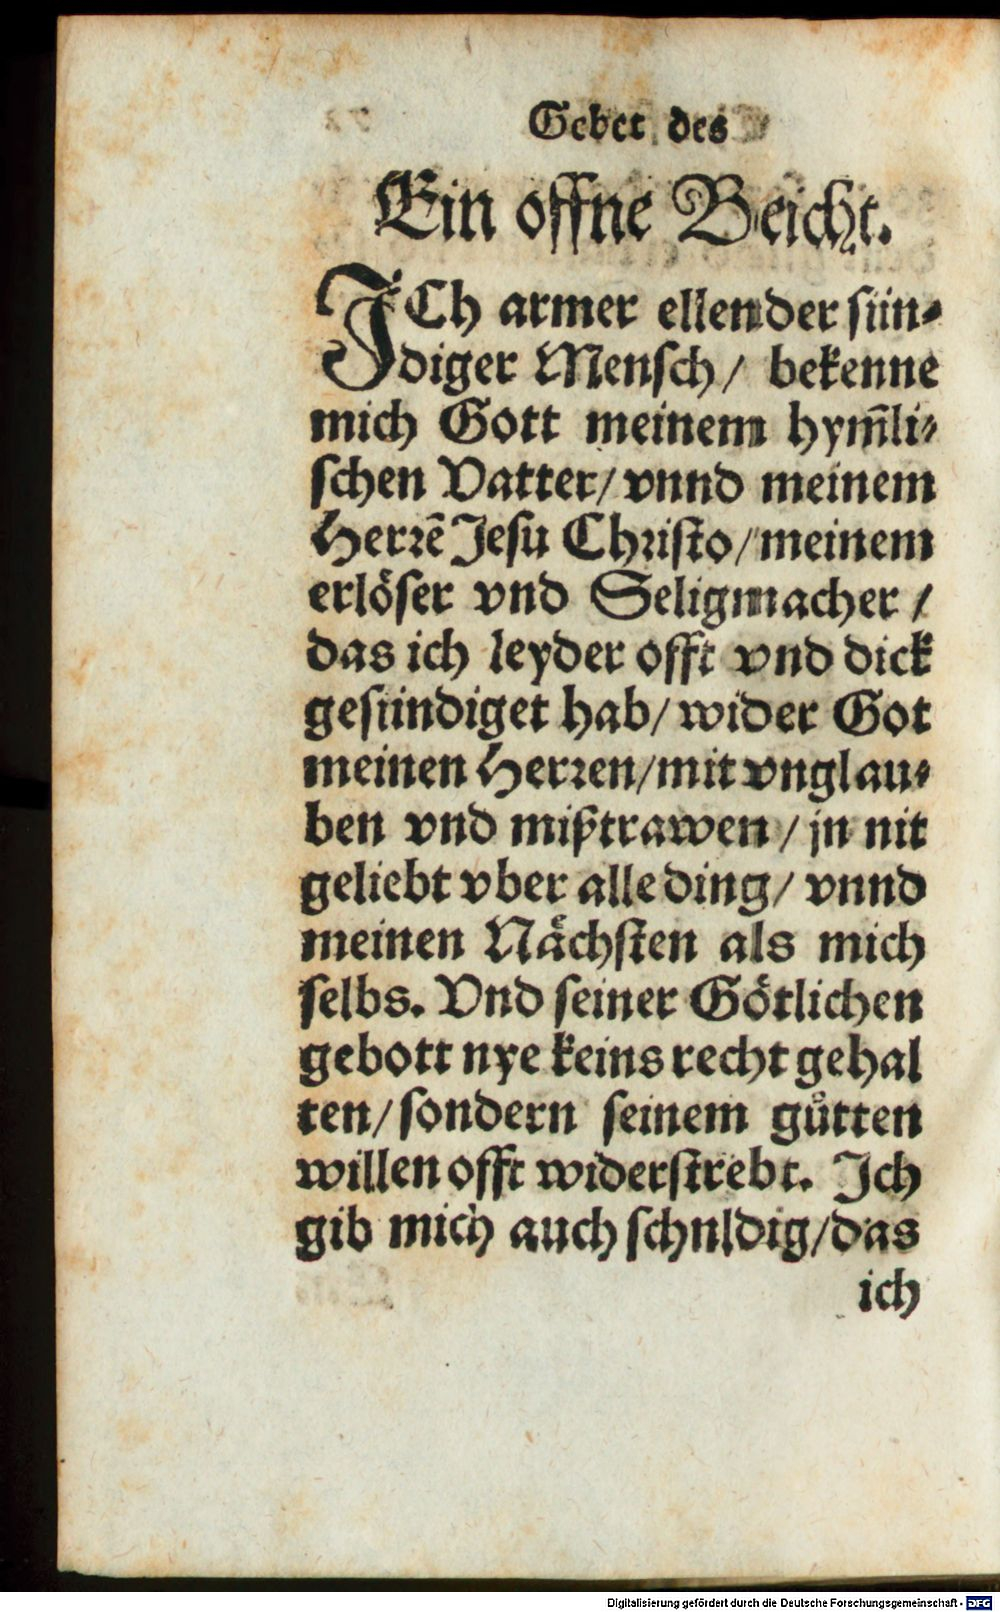 Gebet des
Ein offne Beicht.
ICh armer ellender sün⸗
diger Mensch/ bekenne
mich Gott meinem hym̃li⸗
schen Vatter/ vnnd meinem
Herrẽ Jesu Christo/ meinem
erlöser vnd Seligmacher /
das ich leyder offt vnd dick
gesündiget hab/ wider Got
meinen Herren/ mit vnglau⸗
ben vnd mißtrawen / jn nit
geliebt vber alle ding/ vnnd
meinen Nächsten als mich
selbs. Vnd seiner Götlichen
gebott nye keins recht gehal
ten/ sondern seinem gůtten
willen offt widerstrebt. Ich
gib mich auch schnldig/ das
ich
Digitalisierung gefördert durch die Deutsche Forschungsgemeinschaft - DFG